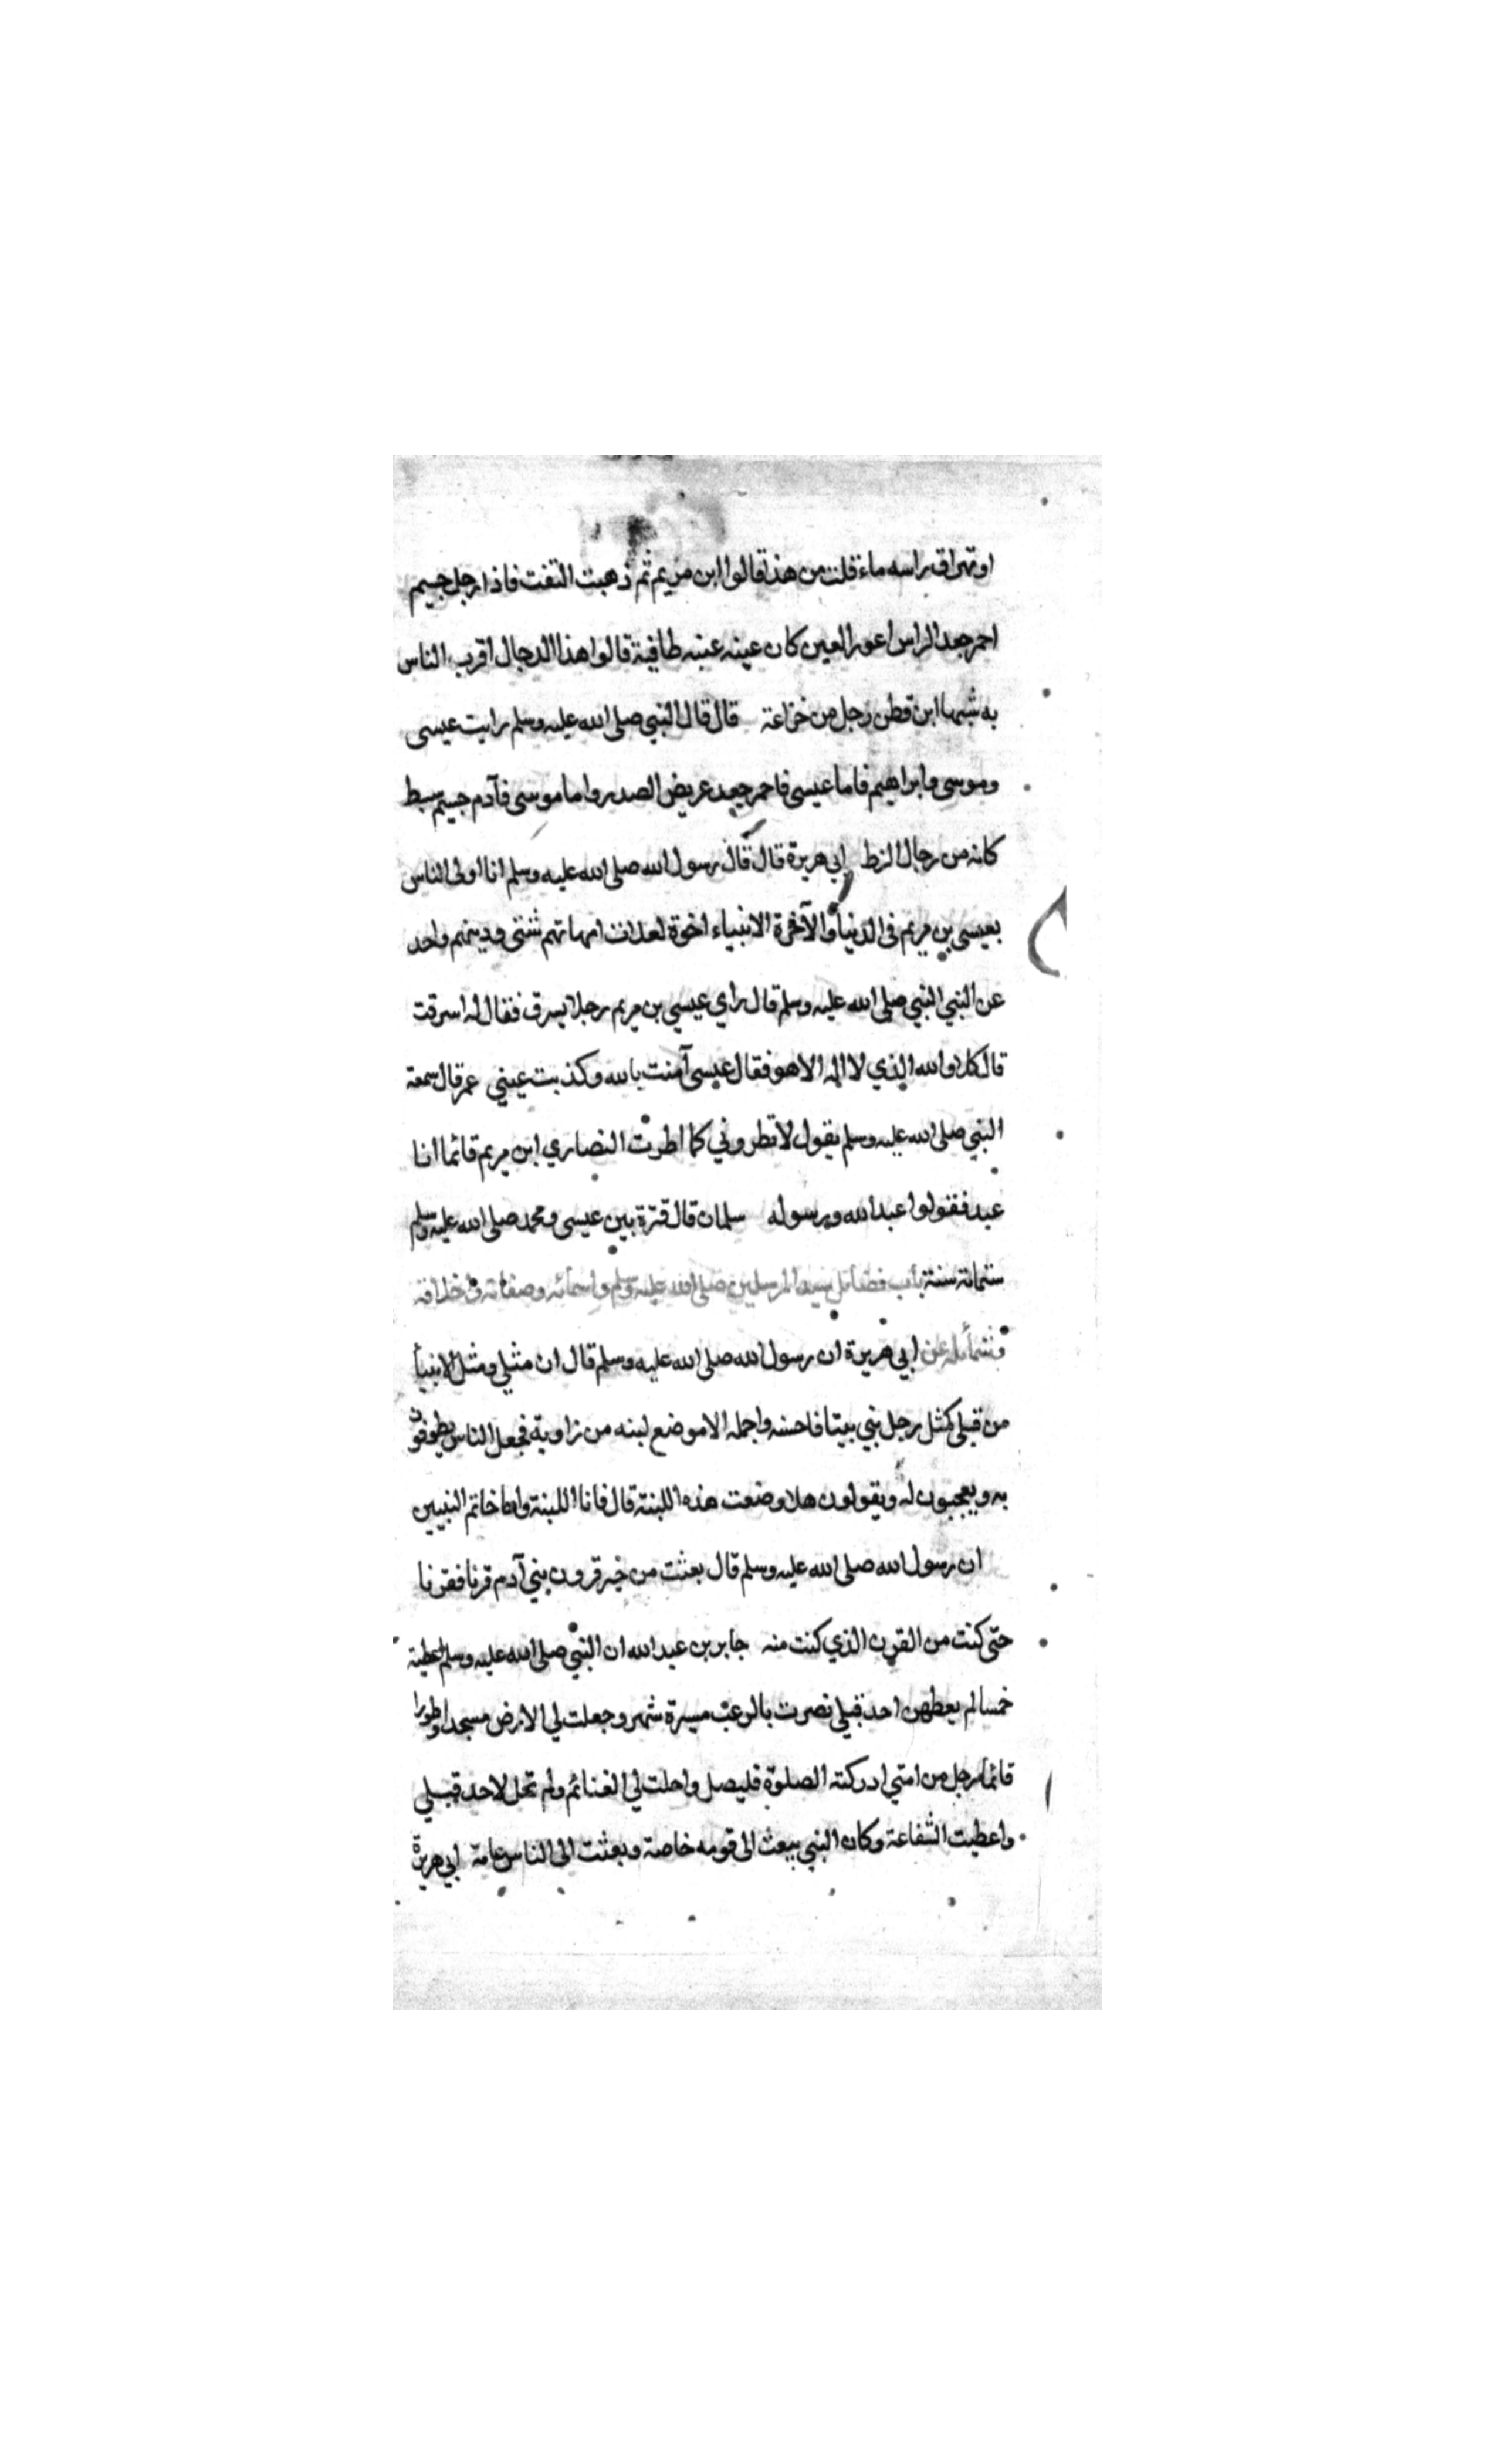 او تهراق راسه ماء قلت من هذ قالوا ابن مريم ثم ذهبت التفت فاذا رجل جسيم
احمر جعد الراس اعور العين كان عينه عنبه طافية قالوا هذا الدجال اقرب الناس
به شبها ابن قطن رجل من خزاعة قال قال النبي صلى الله عليه وسلم رايت عيسى
وموسى وابراهيم فاما عيسى فاحمر جعد عريض الصدر واما موسى فآدم جسيم سبط
كانه من رجال الزط ابي هريرة قال قال رسول الله صلى الله عليه وسلم انا اولى الناس
بعيسى بن مريم في الدنيا والآخرة الانبياء اخوة لعلات امهاتهم شتى ودينهم واحد
عن النبي النبي صلى الله عليه وسلم قال راي عيسى بن مريم رجلا يسرق فقال له اسرقت
قال كلا والله الذي لا اله الا هو فقال عيسى آمنت بالله وكذبت عيني عمر قال سمعة
النبي صلى الله عليه وسلم يقول لا تطروني كما اطرت النصاري ابن مريم قائما انا
عبد فقولوا عبد الله ورسوله سلمان قال فترة بين عيسى ومحمد صلى الله عليه وسلم
ستمائة سنة باب فضائل سيد المرسلين صلى الله عليه وسلم واسمائه وصفاته واخلاقه
وشمائله عن ابي هريرة ان رسول الله صلى الله عليه وسلم قال ان مثلي ومثل الانبيأ
من قبلي كمثل رجل بني بيتا فاحسنه واجمله الا موضع لبنه من زاوية فجعل الناس يطوفون
به ويعجبون له ويقولون هلا وضعت هذه اللبنة قال فانا اللبنة وانا خاتم النبيين
ان رسول الله صلى الله عليه وسلم قال بعثت من خير قرون بني آدم قرنا فقرنا
حتى كنت من القرن الذي كنت منه جابر بن عبد الله ان النبي صلى الله عليه وسلم اعطية
خمسا لم يعطهن احد قبلي نصرت بالرعب مسيرة شهر وجعلت لي الارض مسجدا وطهورا
قائما رجل من امتي ادركته الصلوة فليصل واحلت لي الغنائم ولم تحل لاحد قبلي
واعطيت الشفاعة وكان النبي يبعث الى قومه خاصة وبعثت الى الناس عامة ابي هريرة